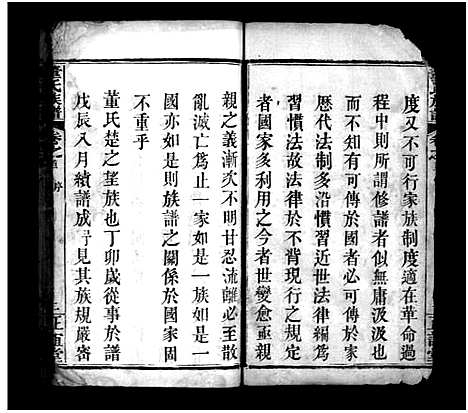 度又不可行家族制度適在革命過
程中則所謂修譜者似無庸汲汲也
而不知有可傳於國者必可傳於家
歷代法制多沿慣習近世法律編爲
習慣法故法律於現行之規定
者國家多利用之今者世變愈亟親
親之義漸次不明甘忍流離必至散
亂滅亡爲止一家如是一族如是一
國亦如是則族譜之關係於國家固
不重乎
董氏楚之望族也丁卯歲從事於譜
戊辰八月續譜成予見其族規嚴密
董氏族譜
卷之首
序
三正直堂